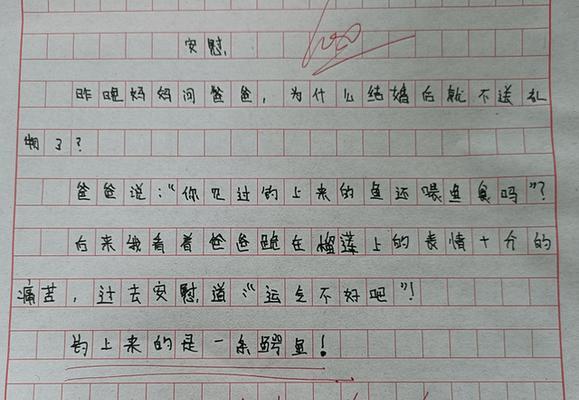 安慰
昨晚妈妈问爸爸,为什么结婚后就不送礼
物了?
爸爸说:“你见过钓上来的鱼还喂鱼食吗”?
后来我看着爸爸跪在榴莲上的表情十分的
痛苦,过去安慰道:“运气不好吧”!
钓上来的是一条鳄鱼!